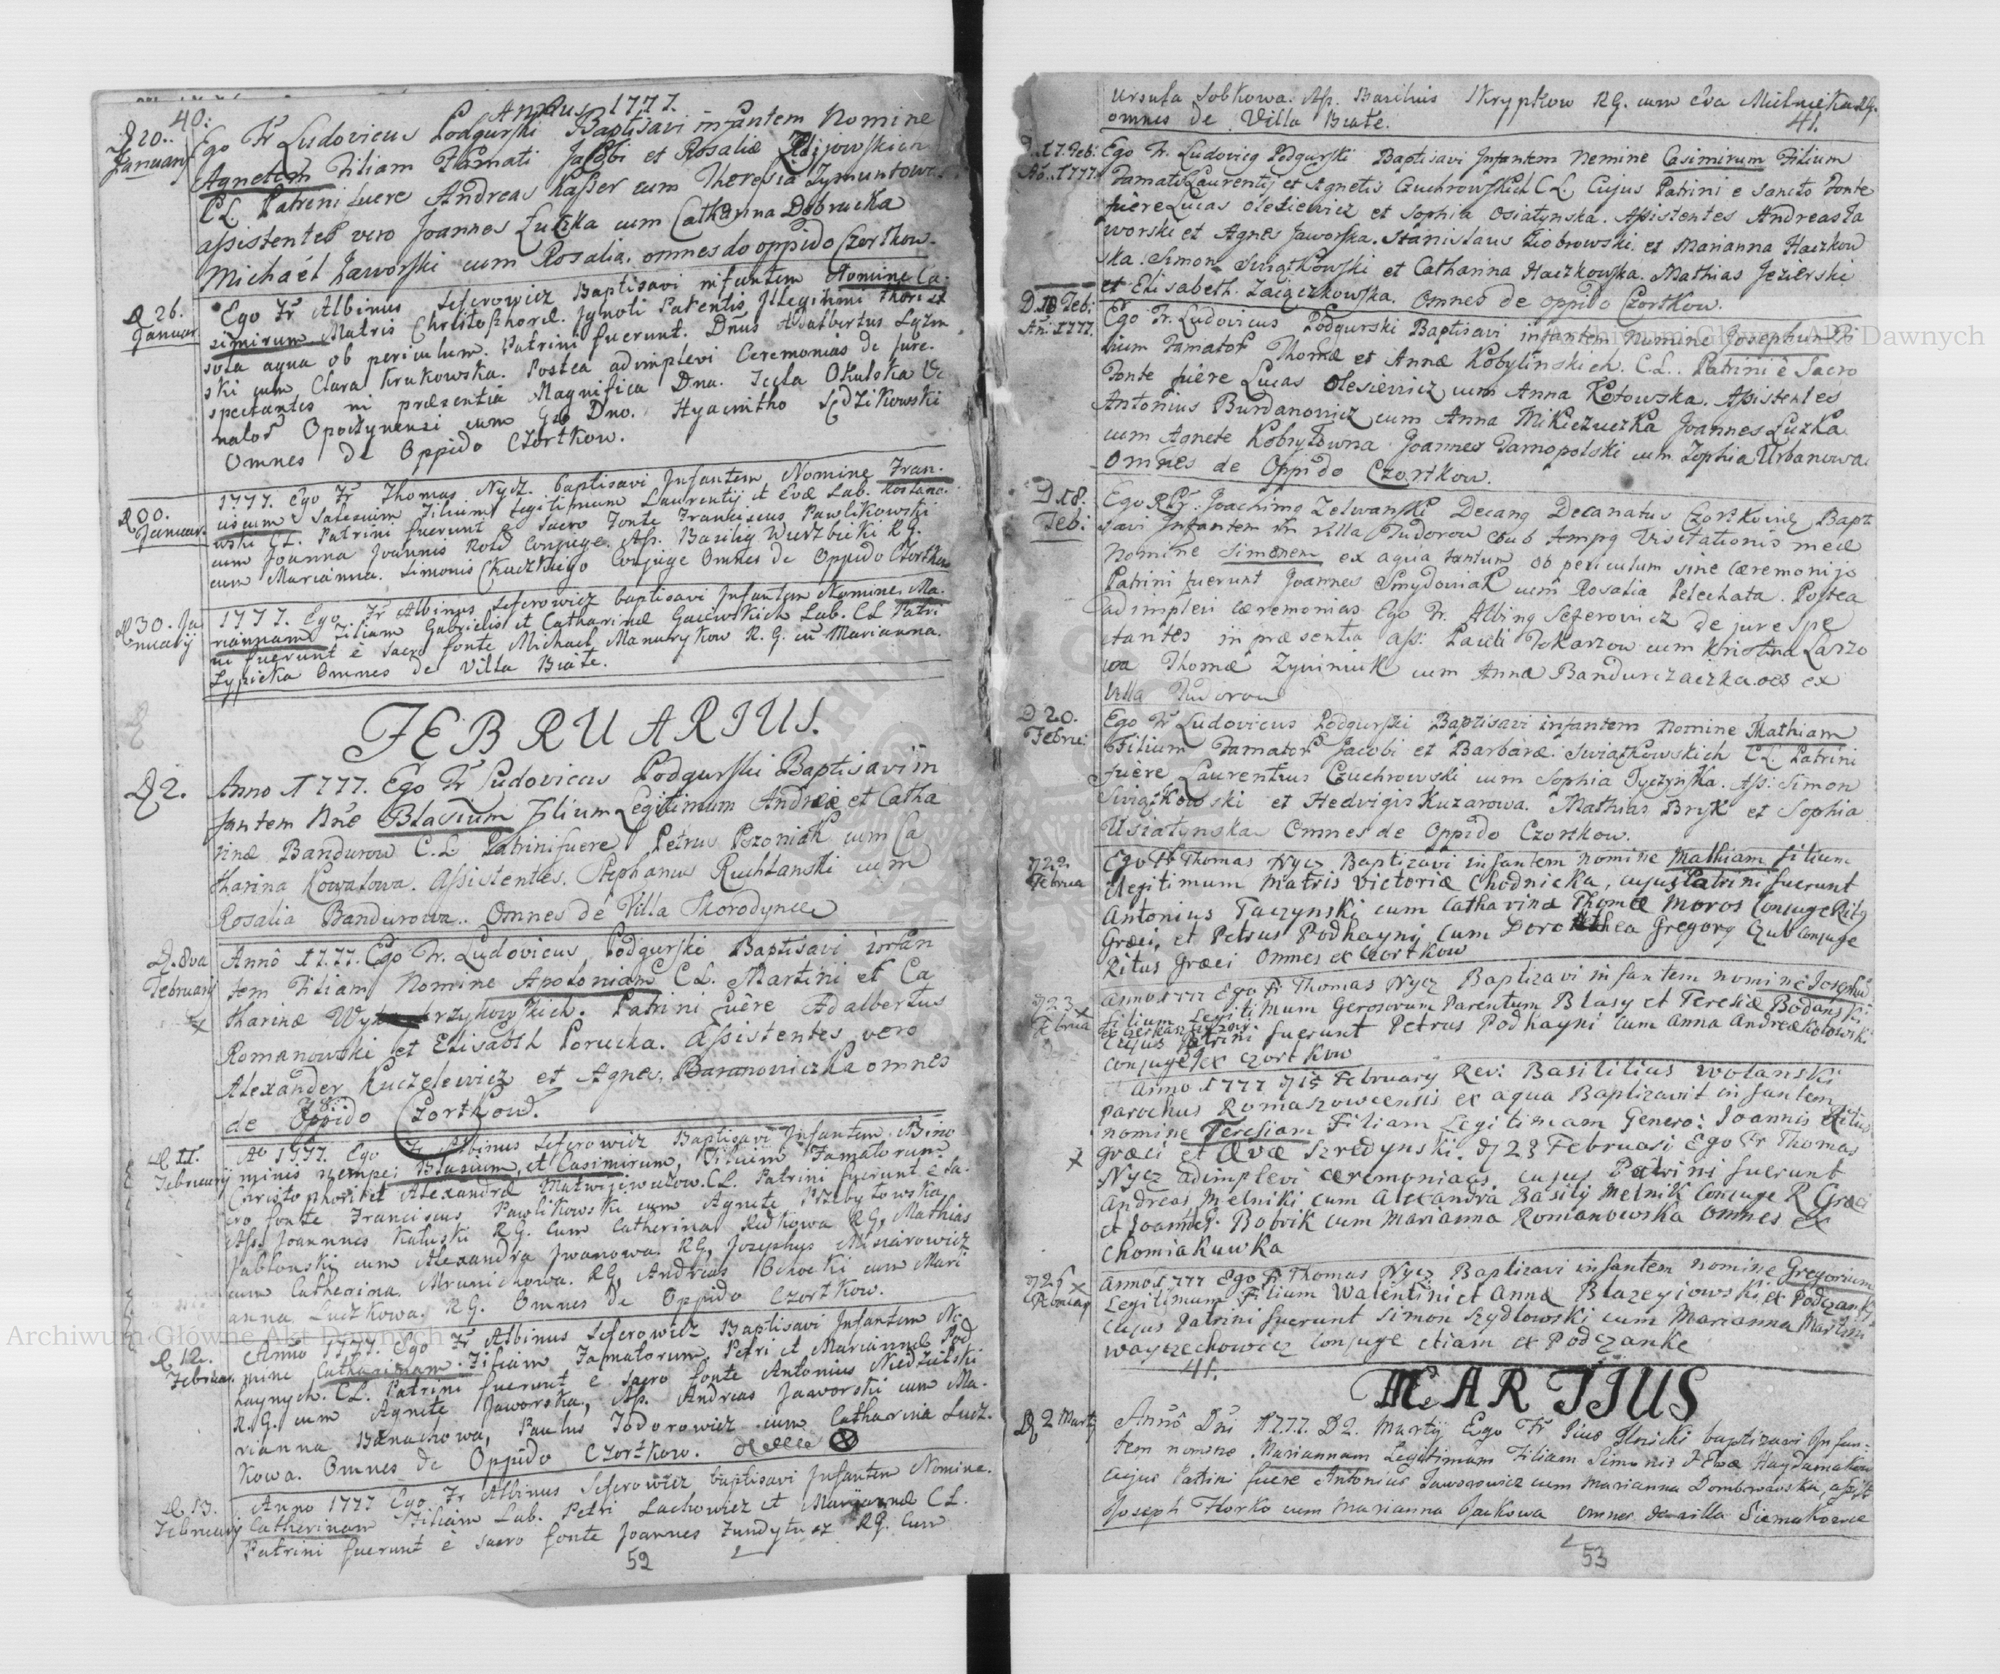 40.
Annus 1777.
D 20. Januarij
Ego Fr Ludovicus Podgurski Baptisavi infantem Nomine
Agnetem Filiam Famati Jacobi et Rosaliæ
C L. Patrini fuere Andreas Kasser cum Theresia Zymuntowa
assistentes vero Joannes Łuczka cum Catharina Dobrucka
Michaël Jaworski cum Rosalia. omnes de oppido Czortkow.
D 26. Januar.
Ego Fr Albinus Seferowicz Baptisavi infantem Nomine Ca-
simirum Matris Christophoræ. Ignoti Patentis Illegitimi thori et
sola aqua ob periculum. Patrini fuerunt. Dnus Adalbertus
ski cum Clara Krukowska. Postea adimplevi Ceremonias de jure.
spectantes in præsentia Magnifica Dna. Tecla Okulska
Opoczynensi cum Dno. Hyacintho Sędzikowski
Omnes de Oppido Czortkow.
Januar.
1777. Ego Fr Thomas Nycz. baptisavi Infantem Nomine Fran-
ciscum Salesium Filium Legitimum Laurentij et Evæ Lab.
wski CL. Patrini fuerunt e sacro Fonte Franciscus Pawlikowski
cum Joanna Joannis Conjuge. Ass. Basilij Wierzbicki R.G.
cum Marianna. Simonis Conjuge Omnes de Oppido Czortkow
D 30. Januarij
1777. Ego Fr Albinus Seferowicz baptisavi Infantem Nomine. Ma-
riannam Filiam Gabrielis et Catharinæ Lab. CL Patri-
ni fuerunt è sacro fonte Michael Mandrykow R. G. cu Marianna.
Lypicka Omnes de Villa Białe.
FEBRUARIUS.
D 2.
Anno 1777. Ego Fr Ludovicus Podgurski Baptisavi in
fantem Nne Blasium Filium Legitimum Andreæ et Catha
rinæ Bandurow C. L. Patrini fuere Petrus Pozniak cum Ca
tharina Kowalowa. Assistentes. Stephanus Ruchlanski cum
Rosalia Bandurowa. Omnes de Villa Skorodynce
D. 8va Februarij
Annô 1777. Ego Fr. Ludovicus Podgurski Baptisavi infan
tem Filiam Nomine Apoloniam C L. Martini et Ca
tharinæ Patrini fuêre Adalbertus
Romanowski et Elisabth Porucka. Assistentes vero
Alexander Kuczelewicz et Agnes. Baranowiczka omnes
de Oppido Czortkow.
D 11. Februarij
Ao 1777. Ego Fr Albinus Seferowicz Baptisavi Infantem. Bino
minis nempe; Blasium, et Casimirum, Filium Famatorum
Christophori et Alexandræ CL. Patrini fuerunt e sa-
cro fonte Franciscus Pawlikowski cum Agnete Przybyłowska
Ass. Joannes Kaluski RG. Cum Catherina Redkowa RG, Mathias
Jablonski cum Alexandra Jwanowa. RG, Josephus
cum Catherina RG, Andreas cum Mari
anna Luczkowa. RG. Omnes De Oppido Czortkow.
D 12. Februar.
Anno 1777. Ego Fr Albinus Seferowicz Baptisavi Infantem No-
mine Catharinam. Filiam Famatorum Petri et Mariannæ Pod
haynych. CL. Patrini fuerunt e sacro fonte Antonius Niedzielski
R.G. cum Agnete Jaworska, Ass. Andreas Jaworski cum Ma-
rianna Banachowa, Paulus Todorowicz cum Catharina Lucz-
kowa. Omnes de Oppido Czortkow.
D. 13. Februarij
Anno 1777 Ego Fr Albinus Seferowicz baptisavi Infantem Nomine.
Catherinam Filiam Lab. Petri Lachowicz et Mariannæ CL.
Patrini fuerunt è sacro fonte Joannes RG. Cum
52
Ursula Sobkowa. Ass. Basilius Skrypkow RG. cum Eva Mielnicka RG.
omnes de Villa Białe.
41.
D. 17. Feb: Ao. 1777.
Ego Fr. Ludovicq Podgurski Baptisavi Infantem Nomine Casimirum Filium
Famato Laurentij et Agnetis Czuchrowskich CL. Cujus Patrini e sancto Fonte
fuere Lucas Olesiewicz et Sophia Osiatynska. Assistentes Andreas Ja
worski et Agnes Jaworska. Stanislaus Ziobrowski et Marianna Haczkow
ska. Simon Swiątkowski et Catharina Haczkowska. Mathias Jezierski
et Elisabeth. Zaięczkowska. Omnes de oppido Czortkow.
D. 18 Feb: An: 1777.
Ego Fr. Ludovicus Podgurski Baptisavi infantem Nomine Josephum Fi
lium Famator Thomæ et Annæ Kobylinskich. C L. Patrini è Sacro
Fonte fuêre Lucas Olesiewicz cum Anna Kotowska. Assistentes
Antonius Burdanowicz cum Anna Joannes Luzka
cum Agnete Kobryłowna Joannes Tarnopolski cum Zophia Urbanowa
Omnes de Oppido Czortkow.
D 18. Feb:
Ego Joachimq Zelwanski Decanq Decanatus Bapti
savi Infantem in villa Tudorow sub Visitationis meæ
Nomine Simonem ex aqua tantum ob periculum sine cæremonijs
Patrini fuerunt Joannes Smydowiak cum Rosalia Pelechata. Postea
adimplevi cæremonias Ego Fr. Albinq Seferowicz de jure spe
ctantes in præsentia ass: Pauli Tokarzow cum Khristina Lazzo
wa Thomæ Zywiniuk cum Anna Bandurczaczka. oes ex
Villa Tudorow
D 20. Februa:
Ego Fr Ludovicus Podgurski Baptisavi infantem Nomine Mathiam
Filium Famator Jacobi et Barbaræ. Swiątkowskich C L. Patrini
fuêre Laurentius Czuchrowski cum Sophia Tyczynska. Ass: Simon
Swigtkowski et Hedvigis Kuzarowa. Mathias Bryk et Sophia
Usiatynska Omnes de Oppido Czortkow.
D 22 Februa
Ego Fr Thomas Nycz Baptizavi infantem nomine Mathiam filium
illegitimum Matris Victoriæ Chodnicka, cujus Patrini fuerunt
Antonius Taczynski cum Catharina Thomæ Moros Conjuge Ritq
Græci, et Petrus Podhayni cum Dorothea Gregorij Czub conjuge
Ritus Græci omnes ex Czortkow
D 23 Februa
Anno 1777 Ego Fr Thomas Nycz Baptizavi infantem nomine Josephu
Filium Legitimum Generosorum Parentum Blasij et Teresiæ Bodanski
cujus Patrini fuerunt Petrus Podhayni cum Anna Andreæ Kotowski
conjuge ex Czortkow
Anno 1777 D 15 February Rev: Basililius Wolanski
parochus Romaszowcensis ex aqua Baptizavit infantem
nomine Teresiam Filiam Legitimam Genero: Joannis Ritus
græci et Ævæ Szredynski. D 23 Februari Ego Fr Thomas
Nycz adimplevi cæremonias cujus Patrini fuerunt
Andreas Melniki cum Alexandra Basilij Melnik Conjuge R Græci
et Joannes Bobrik cum Marianna Romanowska omnes ex
Chomiakuwka
Anno 1777 Ego Fr Thomas Nycz Baptizavi infantem nomine Gregorium
Legitimum Filium Walentini et Annæ Blazeyiowski ex Podczanki
cujus Patrini fuerunt Simon Szydlowski cum Marianna Martini
Wayczechowicz Conjuge etiam ex Podczanke
41.
MARTIUS
D 2 Martij
Annô Dni 1777. D 2. Martij Ego Fr Pius Ilnicki baptizavi Infan-
tem nomine Mariannam Legitimam Filiam Simonis Et Evæ Haydamakow
cujus Patrini fuere Antonius Jaworowicz cum Marianna Dombrowska, assis
Joseph Horko cum Marianna Jackowa omnes de villa Siemakowce
53
Archiwum Główne Akt Dawnych
Archiwum Główne Akt Dawnych